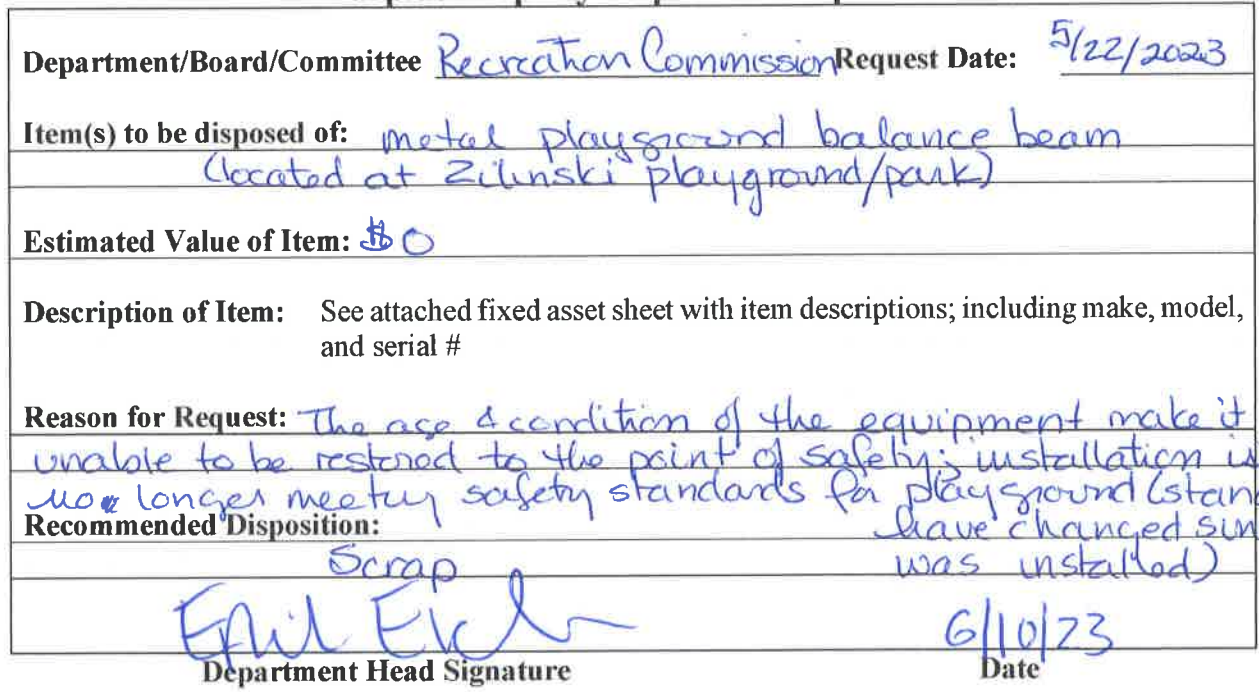 Department/Board/Committee Recreation Commission Request Date: 5/22/2023
Item(s) to be disposed of: metal playground balance beam
(located at Zilinski playground/park)
Estimated Value of Item: $0
Description of Item: See attached fixed asset sheet with item descriptions; including make, model,
and serial #
Reason for Request: The age & condition of the equipment make it
unable to be restored to the point of safety; installation is
no longer meeting safety standards for playground (stan
have changed sin
Recommended Disposition:
was installed)
Scrap
6/10/23
Department Head Signature
Date